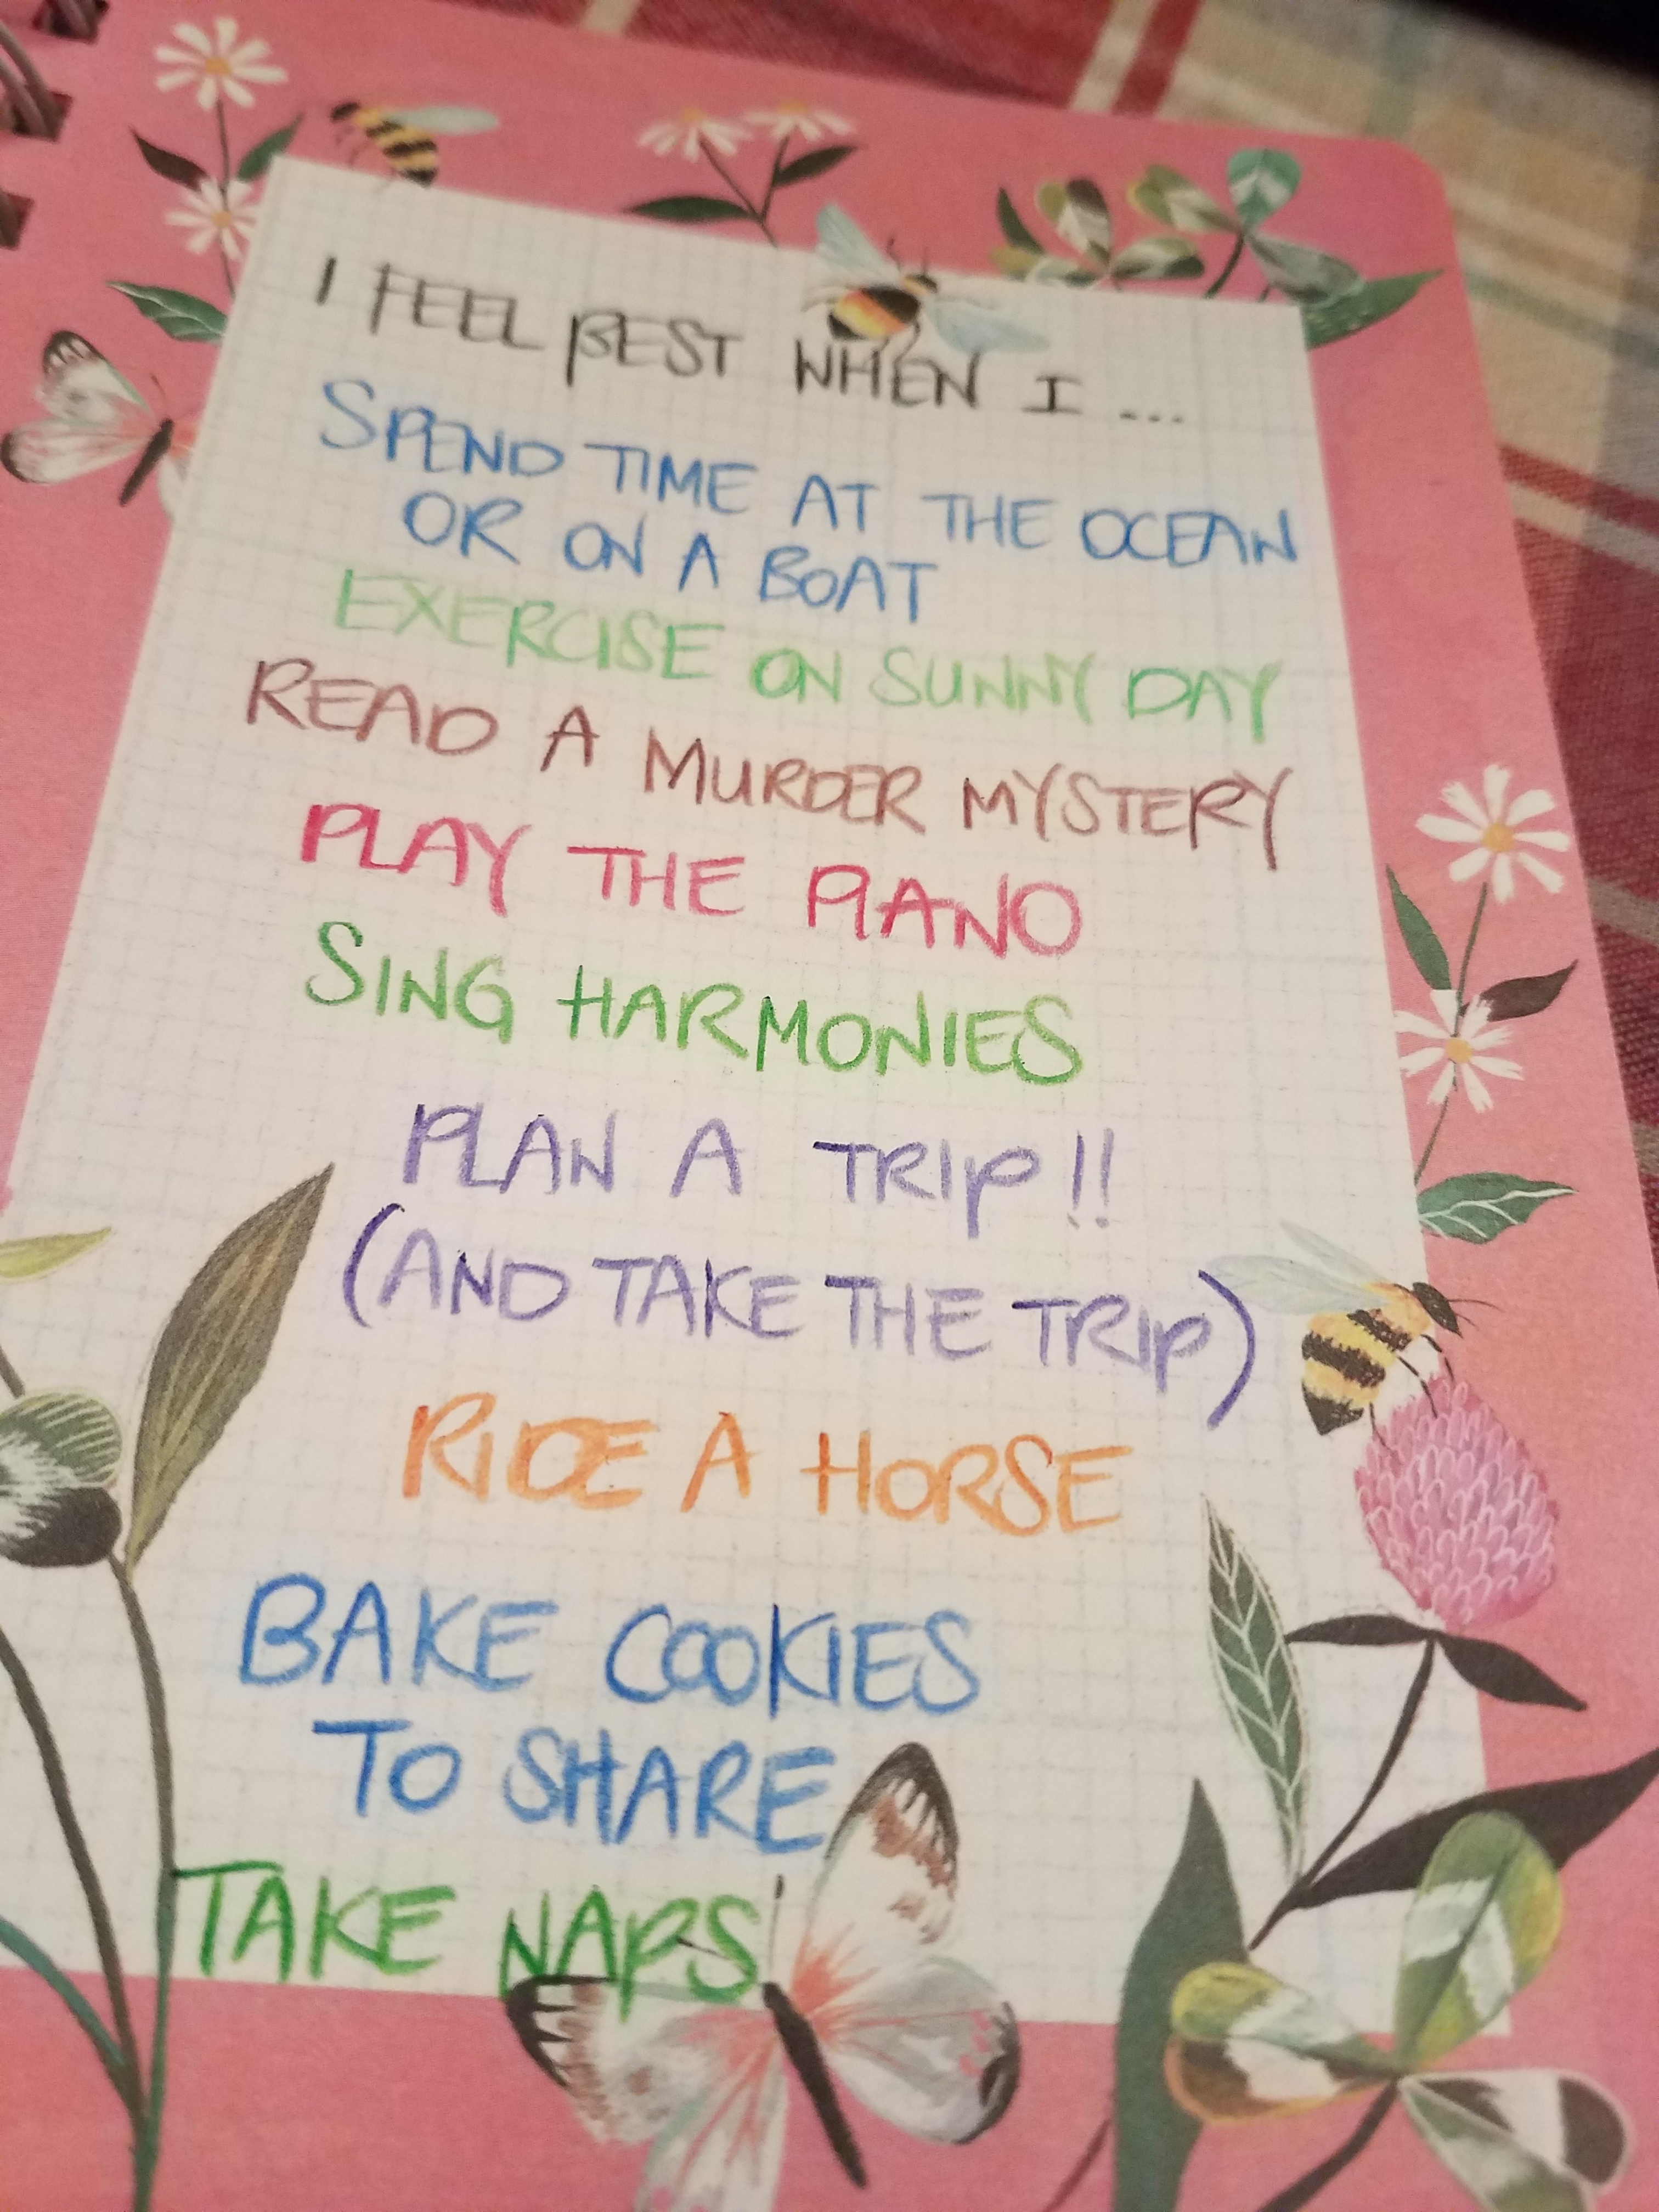 I FEEL BEST WHEN I ...
SPEND TIME AT THE OCEAN
OR ON A BOAT
EXERCISE ON SUNNY DAY
READ A MURDER MYSTERY
PLAY THE PIANO
SING HARMONIES
PLAN A TRIP!!
(AND TAKE THE TRIP)
RIDE A HORSE
BAKE COOKIES
TO SHARE
TAKE NAPS